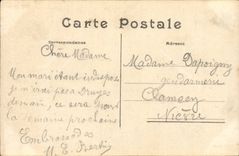 Carte Postale
Correspondance
Adresse
Chère Madame
Mon mari étant indisposé
je n'irai pas à Druyes
demain, ce sera pour
la semaine prochaine
Embrassades
M. E.
Madame
gendarmerie
Clamecy
Nièvre